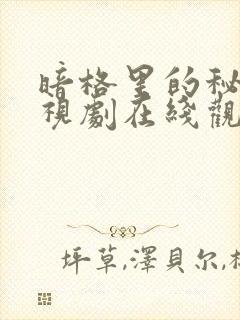 暗格里的秘
視劇在綫觀
坪草,澤貝尔,杉